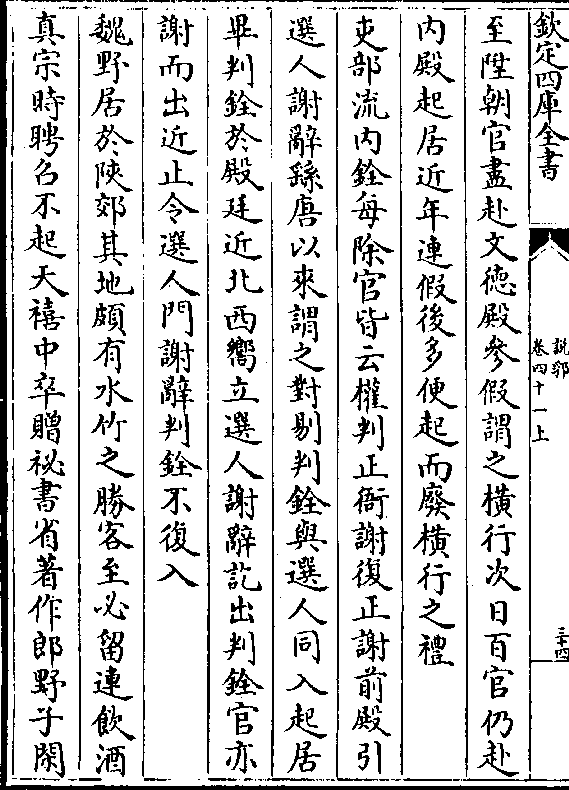 欽定四庫全書
說郛
卷四十一上
三十四
至陞朝官盡赴文德殿參假謂之橫行次日百官仍赴
內殿起居近年連假後多便起而廢橫行之禮
吏部流內銓每除官皆云權判正衙謝復正謝前殿引
選人謝辭繇唐以來謂之對剔判銓與選人同入起居
畢判銓於殿廷近北西嚮立選人謝辭訖出判銓官亦
謝而出近止令選人門謝辭判銓不復入
魏野居於陜郊其地頗有水竹之勝客至必留連飲酒
真宗時聘召不起天禧中卒贈祕書省著作郎野子閑